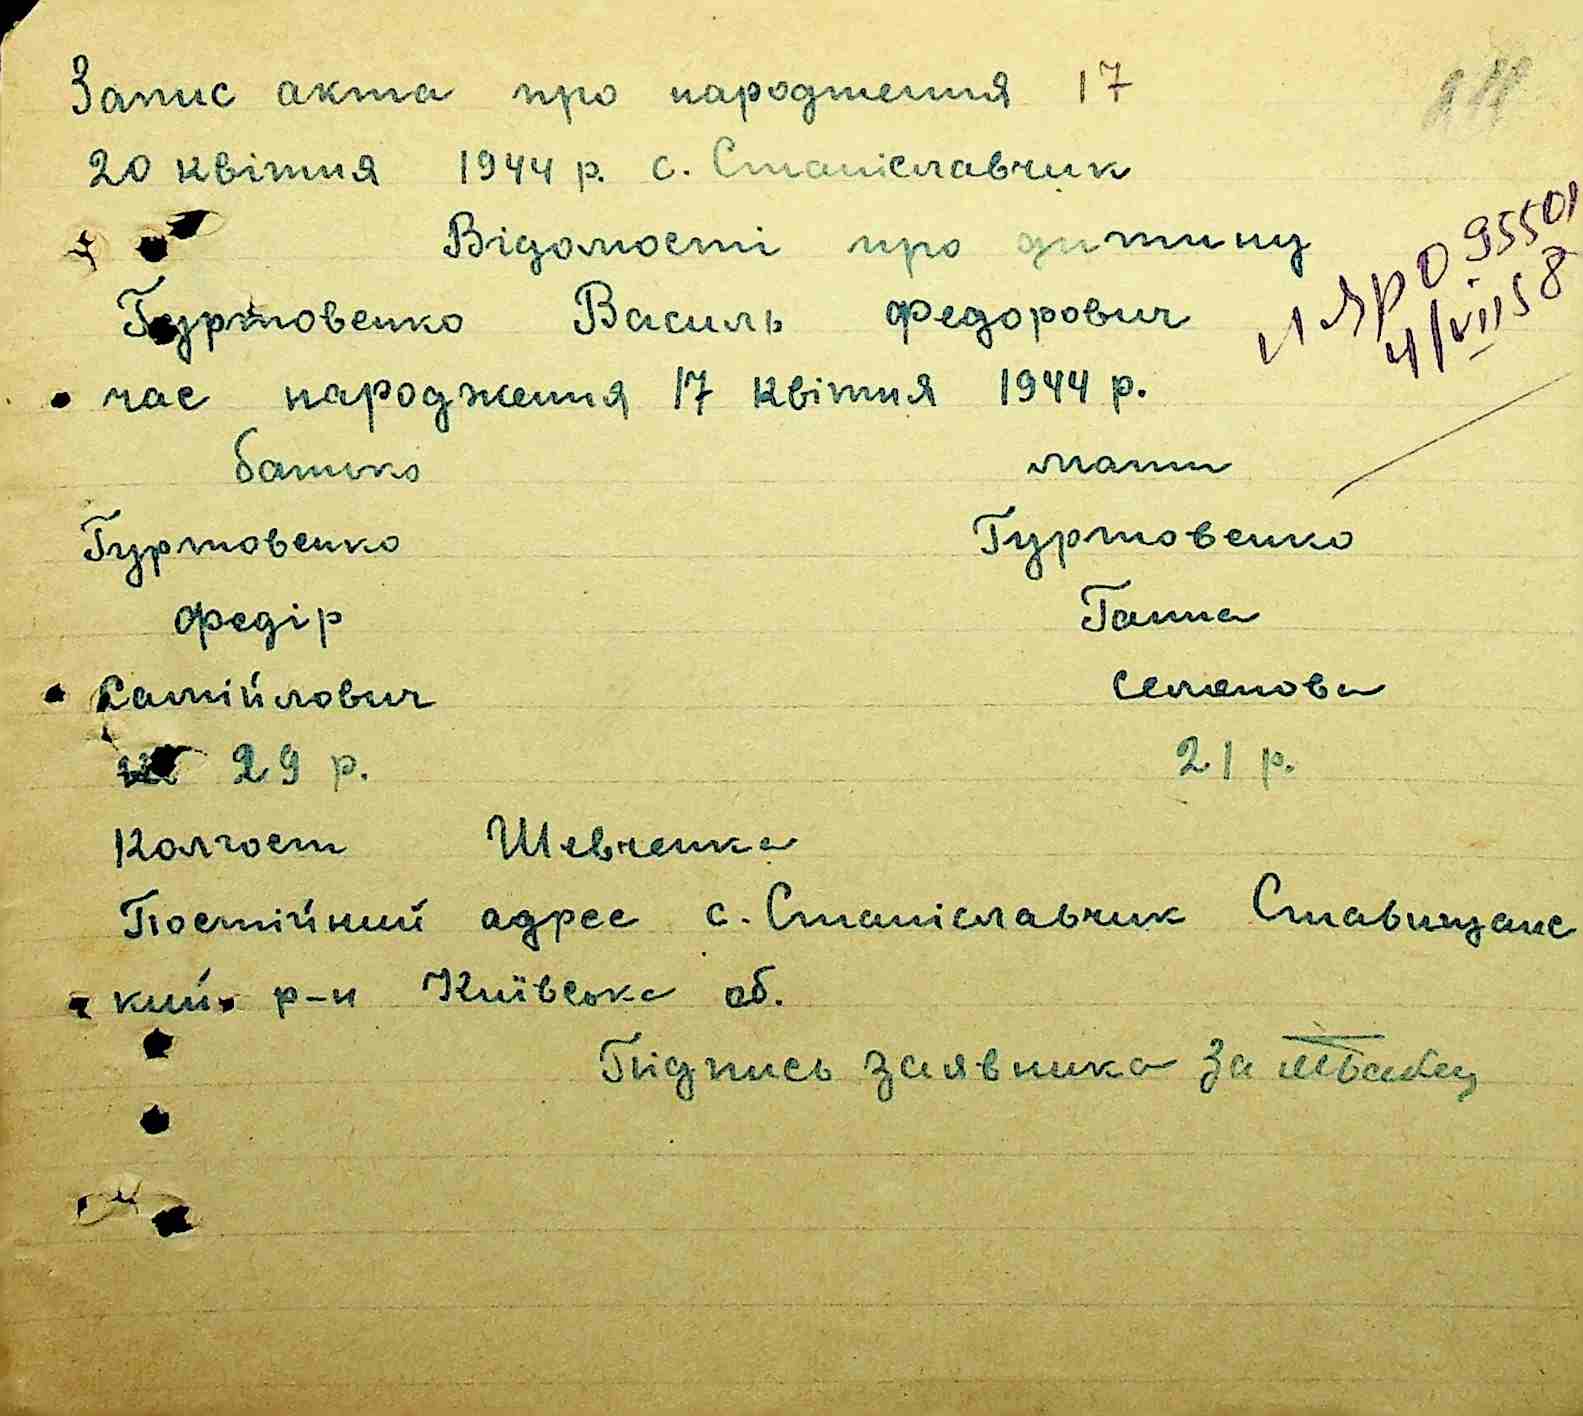 Запис акта про народження 17
20 квітня 1944 р. с. Станіславчик
Відомості про дитину
Гуртовенко Василь Федорович
час народження 17 квітня 1944 р.
батько мати
Гуртовенко Гуртовенко
Федір Ганна
Самійлович Семенова
29 р. 21 р.
Колгосп Шевченка
Постійний адрес с. Станіславчик Ставищанс
кий р-н Київська об.
Підпись заявника За
II ЯР 095501
4/VII 58